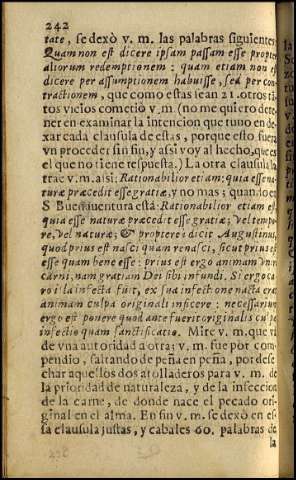 242
tate, se dexò v. m. las palabras siguientes
Quam non est dicere ipsam passam esse propter
aliorum redemptionem: quam etiam non est
dicere per assumptionem habuisse, sed per con
tractionem, que como estas sean 21. otros tã-
tos vicios cometiò v. m. (no me quiero dete-
ner en examinar la intencion que tuuo en de-
xar cada clausula de estas, porque esto, fuera
vn proceder sin fin, y assi voy al hecho, que es
el que no tiene respuesta.) La otra clausula la
trae v. m. assi: Rationabilior etiam: quia esse na-
turæ præcedit esse gratiæ, y no mas; quando en
S. Buenauentura està: Rationabilior etiam est,
quia esse naturæ præcedit esse gratiæ; vel tempo
re, vel natura; & propterei dicit Augustinus,
quod prius est nasci quam renasci, sicut prius est
esse quam bene esse: prius est ergo animam vniri
carni, nam gratiam Dei sibi infundi. Si ergo ca
ro illa infecta fuit, ex sua infectione nacta erat
animam culpa originali inficere: necessarium
ergo est ponere quod ante fuerit originalis culpæ
infectio quam sanctificatio. Mire v. m. que và
de vna autoridad a otra; v. m. fue por com-
pendio, saltando de peña en peña, por dese
char aquellos dos atolladeros para v. m. de
la prioridad de naturaleza, y de la infeccion
de la carne, de donde nace el pecado ori-
ginal en el alma. En fin v. m. se dexò en es-
sa clausula justas, y cabales 60. palabras de
la